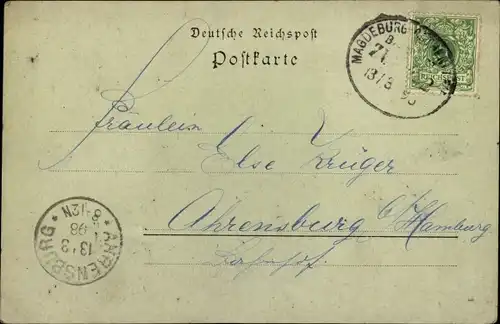 Deutsche Reichspost
Postkarte
MAGDEBURG
13/3
98
Fräulein
Else Krüger
Ahrensburg b/Hamburg
Bahnhof.
* AHRENSBURG *
13/3
98
8-12N